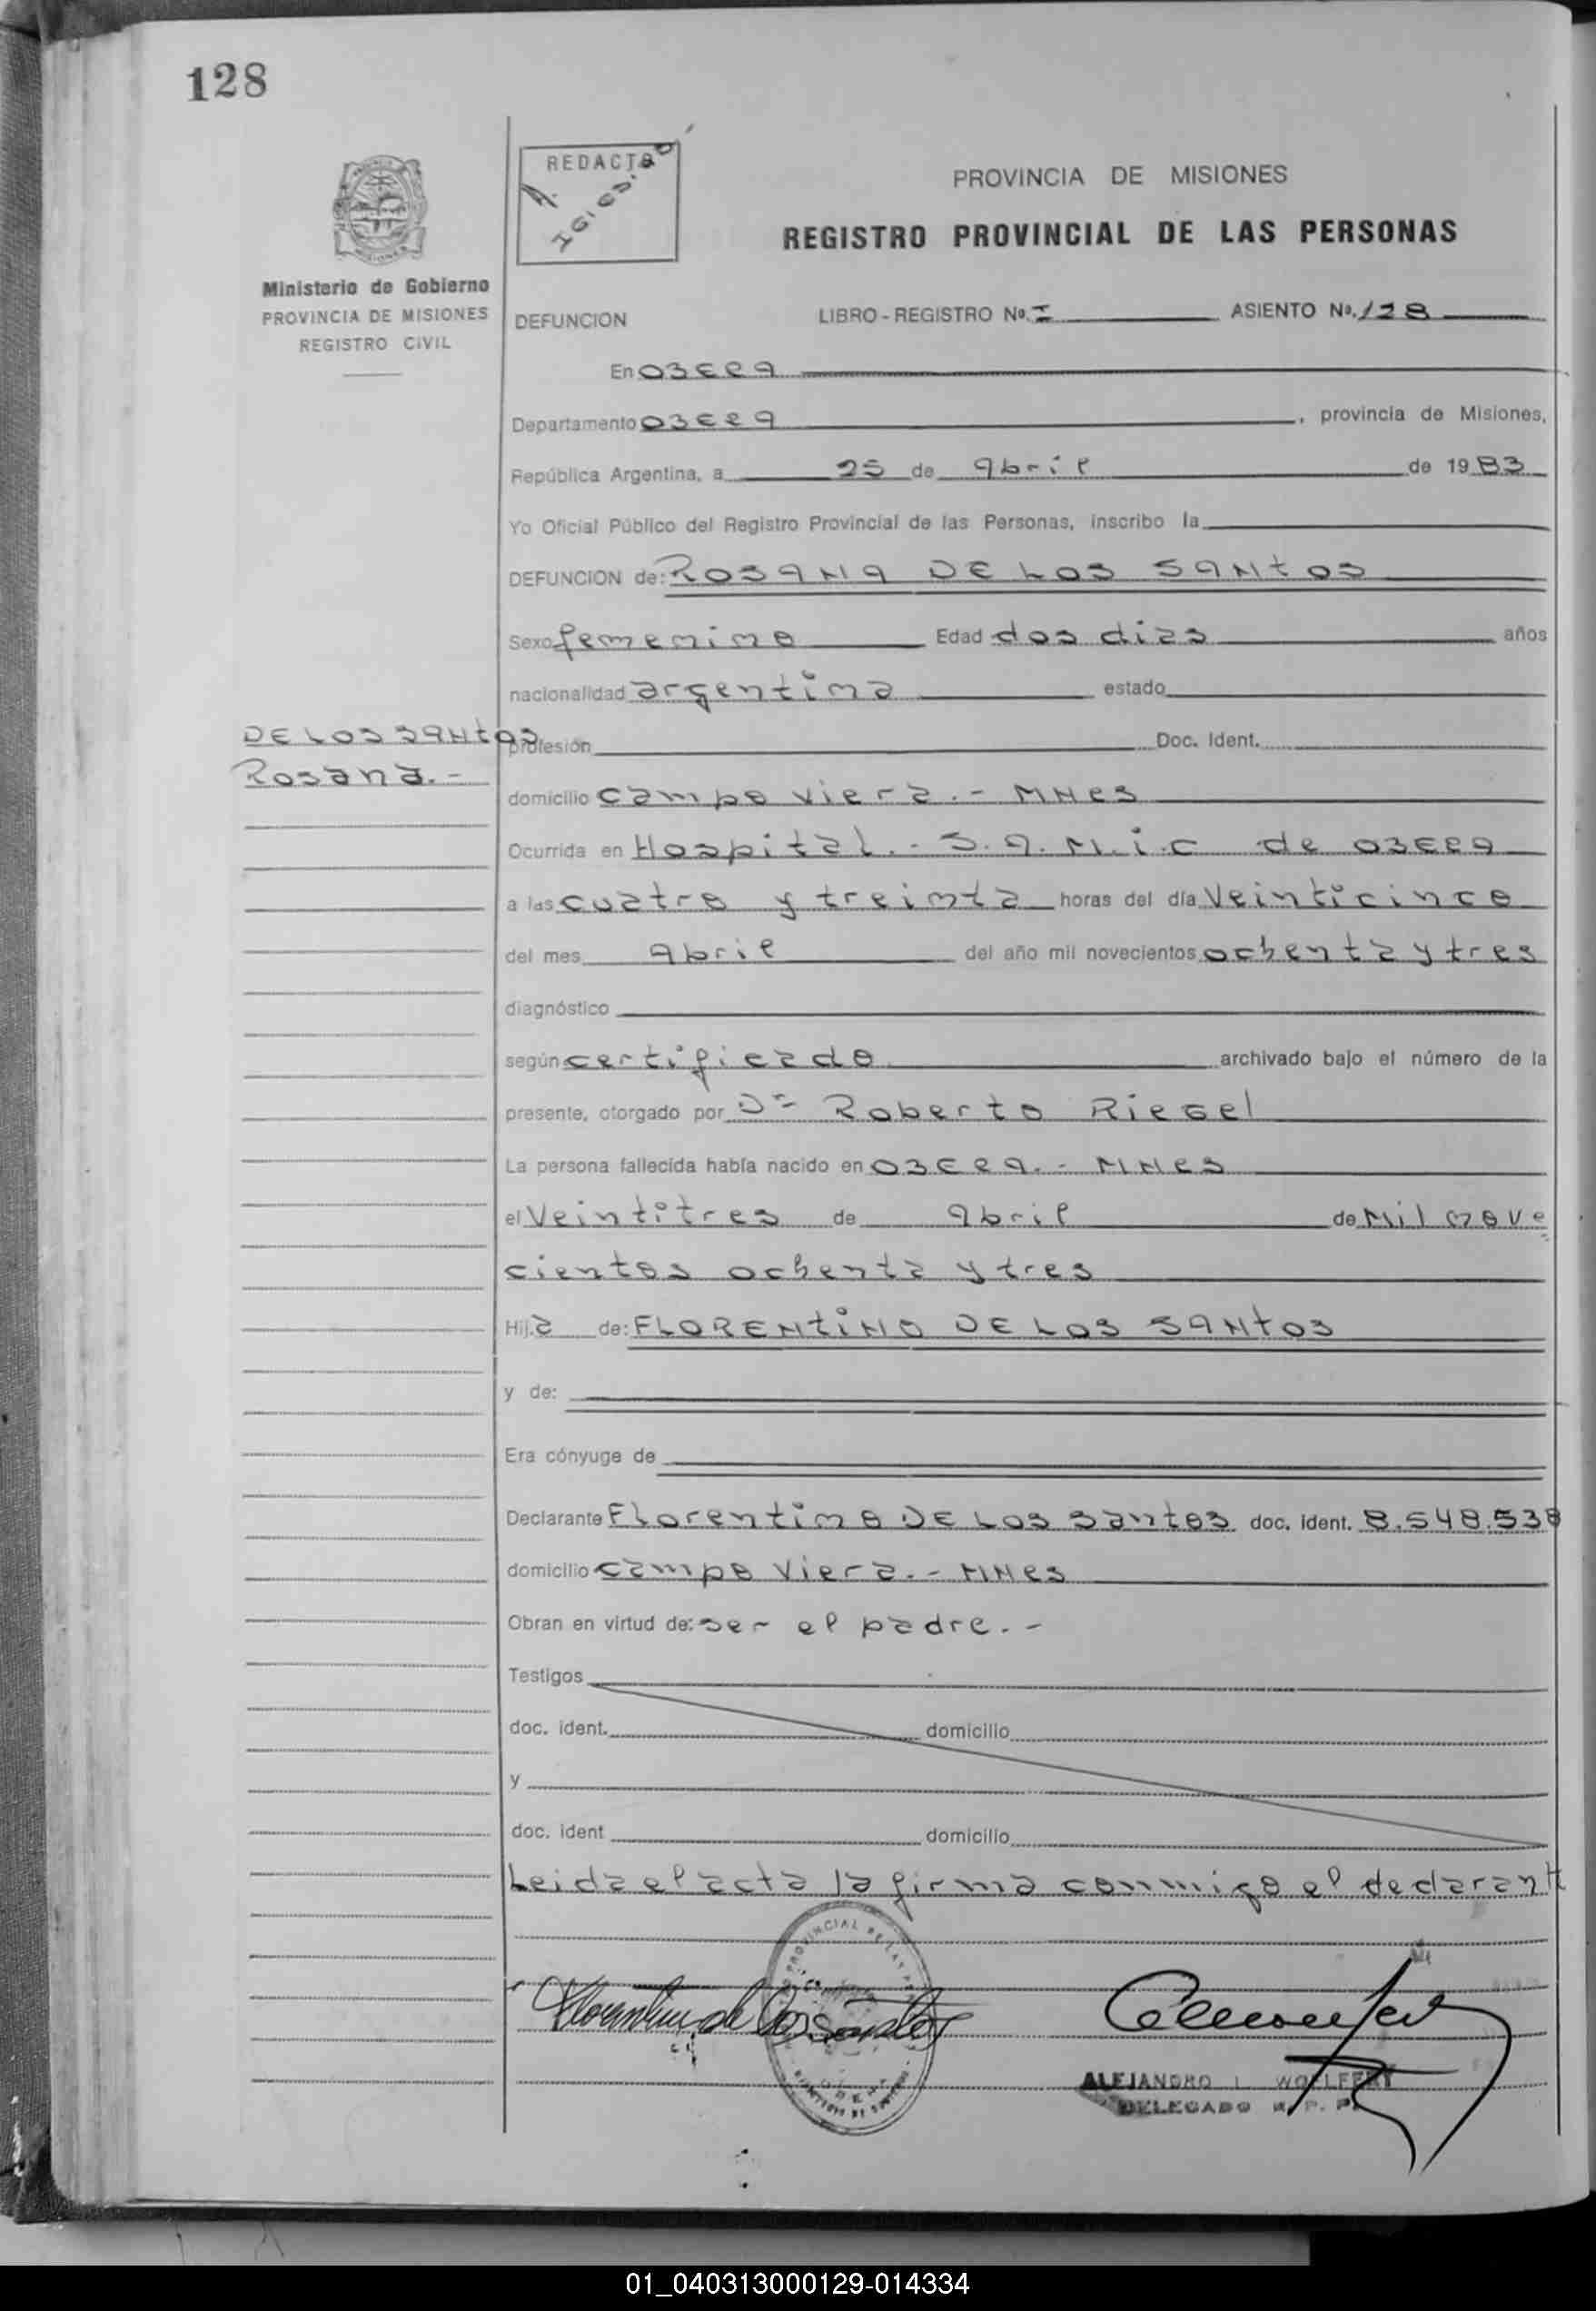 128
REDACTO
Ministerio de Gobierno
PROVINCIA DE MISIONES
REGISTRO CIVIL
PROVINCIA DE MISIONES
REGISTRO PROVINCIAL DE LAS PERSONAS
DEFUNCION LIBRO - REGISTRO No. I ASIENTO No. 128
En OBERA
Departamento OBERA, provincia de Misiones,
República Argentina, a 25 de Abril de 1983
Yo Oficial Público del Registro Provincial de las Personas, inscribo la
DEFUNCION de: ROSANA DE LOS SANTOS
Sexo femenino Edad dos dias años
nacionalidad argentina estado
DE LOS SANTOS
Rosana.-
profesión Doc. Ident.
domicilio campo viera.- MNes
Ocurrida en Hospital.- S.A.M.i.C de OBERA
a las cuatro y treinta horas del día Veinticinco
del mes Abril del año mil novecientos ochenta y tres
diagnóstico
según certificado archivado bajo el número de la
presente, otorgado por Dr Roberto Riegel
La persona fallecida había nacido en OBERA.- MNes
el Veintitres de Abril de Mil nove
cientos ochenta y tres
Hija de: FLORENTINO DE LOS SANTOS
y de:
Era cónyuge de
Declarante Florentino DE LOS Santos doc. ident. 8.548.538
domicilio campo Viera.- MNes
Obran en virtud de: ser el padre.-
Testigos
doc. ident. domicilio
y
doc. ident domicilio
Leida el acta la firma conmigo el declarant
Florentino de los Santos
ALEJANDRO L. WOLFFERT
DELEGADO R. P. P.
01_040313000129-014334